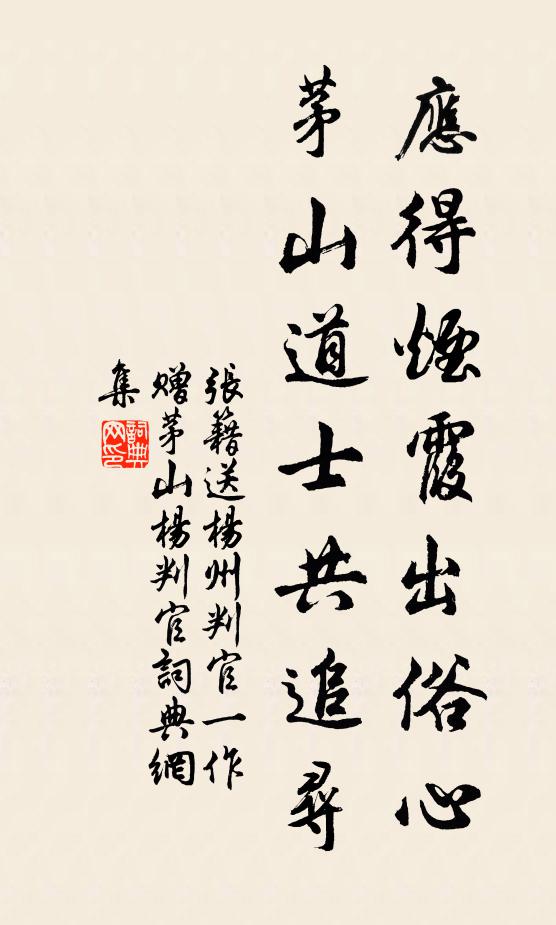 應得煙霞出俗心
茅山道士共追尋
張籍送楊州判官一作
贈茅山楊判官詞典網
集
詞典
网印